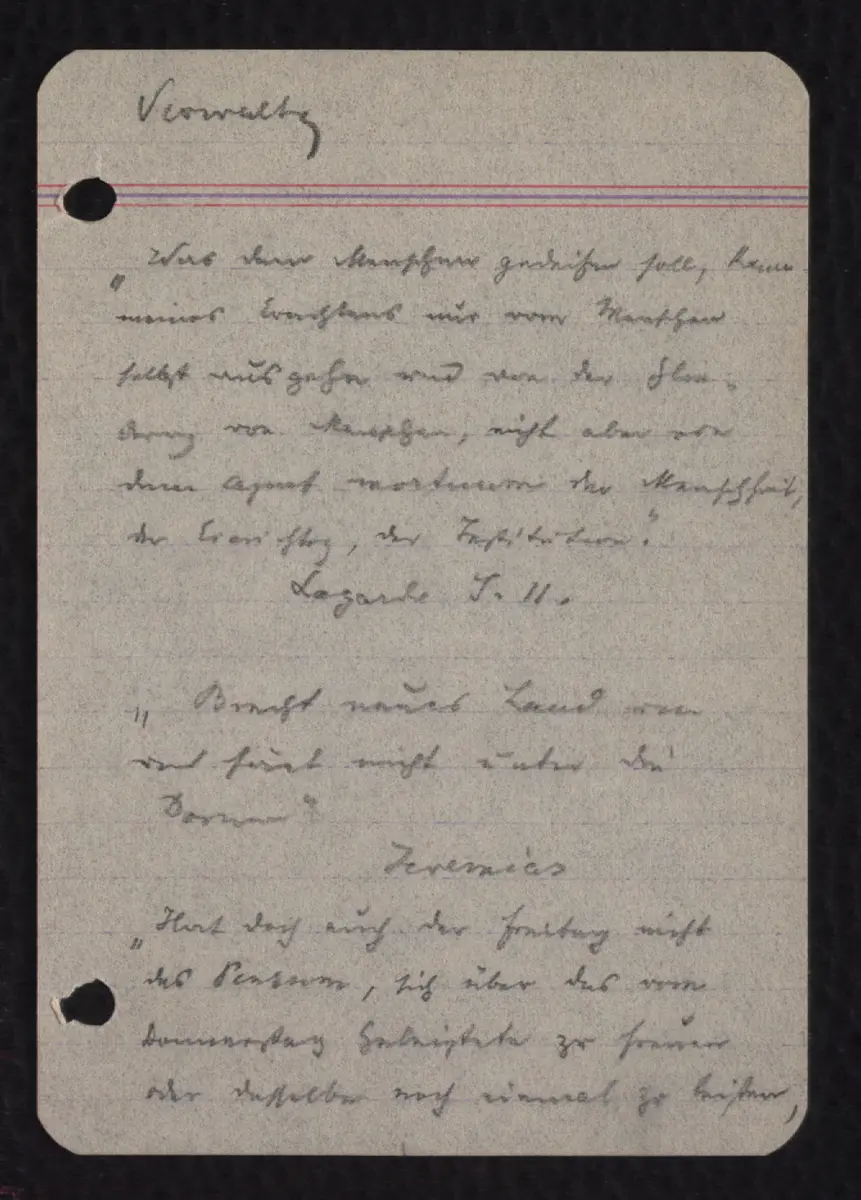 Verwaltg
„Was dem Menschen gedeihen soll, kann
meines Erachtens nur vom Menschen
selbst ausgehn und von der Glie-
derung von Menschen, nicht aber von
dem caput mortuum der Menschheit,
der Einrichtg, der Institution."
Lagarde S. 11.
„Brecht neues Land um
und säet nicht unter die
Dornen"
Jeremias
„Hat doch auch der Freitag nicht
das Pensum, sich über das vom
Donnerstag Geleistete zu freuen
oder dasselbe noch einmal zu leisten,